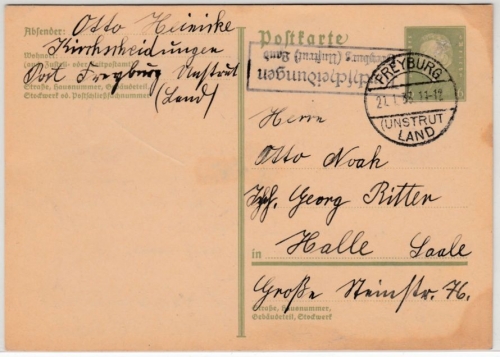 Absender: Otto Heinicke
Kirchscheidungen
Wohnort, 
(auch Zustell- oder Leitpostamt)
Post Freyburg Unstrut
Straße, Hausnummer, Gebäudeteil,
Stockwerk od. Postschließfachnummer
(Land)
Postkarte
Kirchscheidungen
Freyburg (Unstrut) Land
FREYBURG
21.1.33.11-12
(UNSTRUT
LAND
Herrn
Otto Noah
Georg Ritter
in Halle Saale
Große Steinstr. 76.
Straße, Hausnummer,
Gebäudeteil, Stockwerk